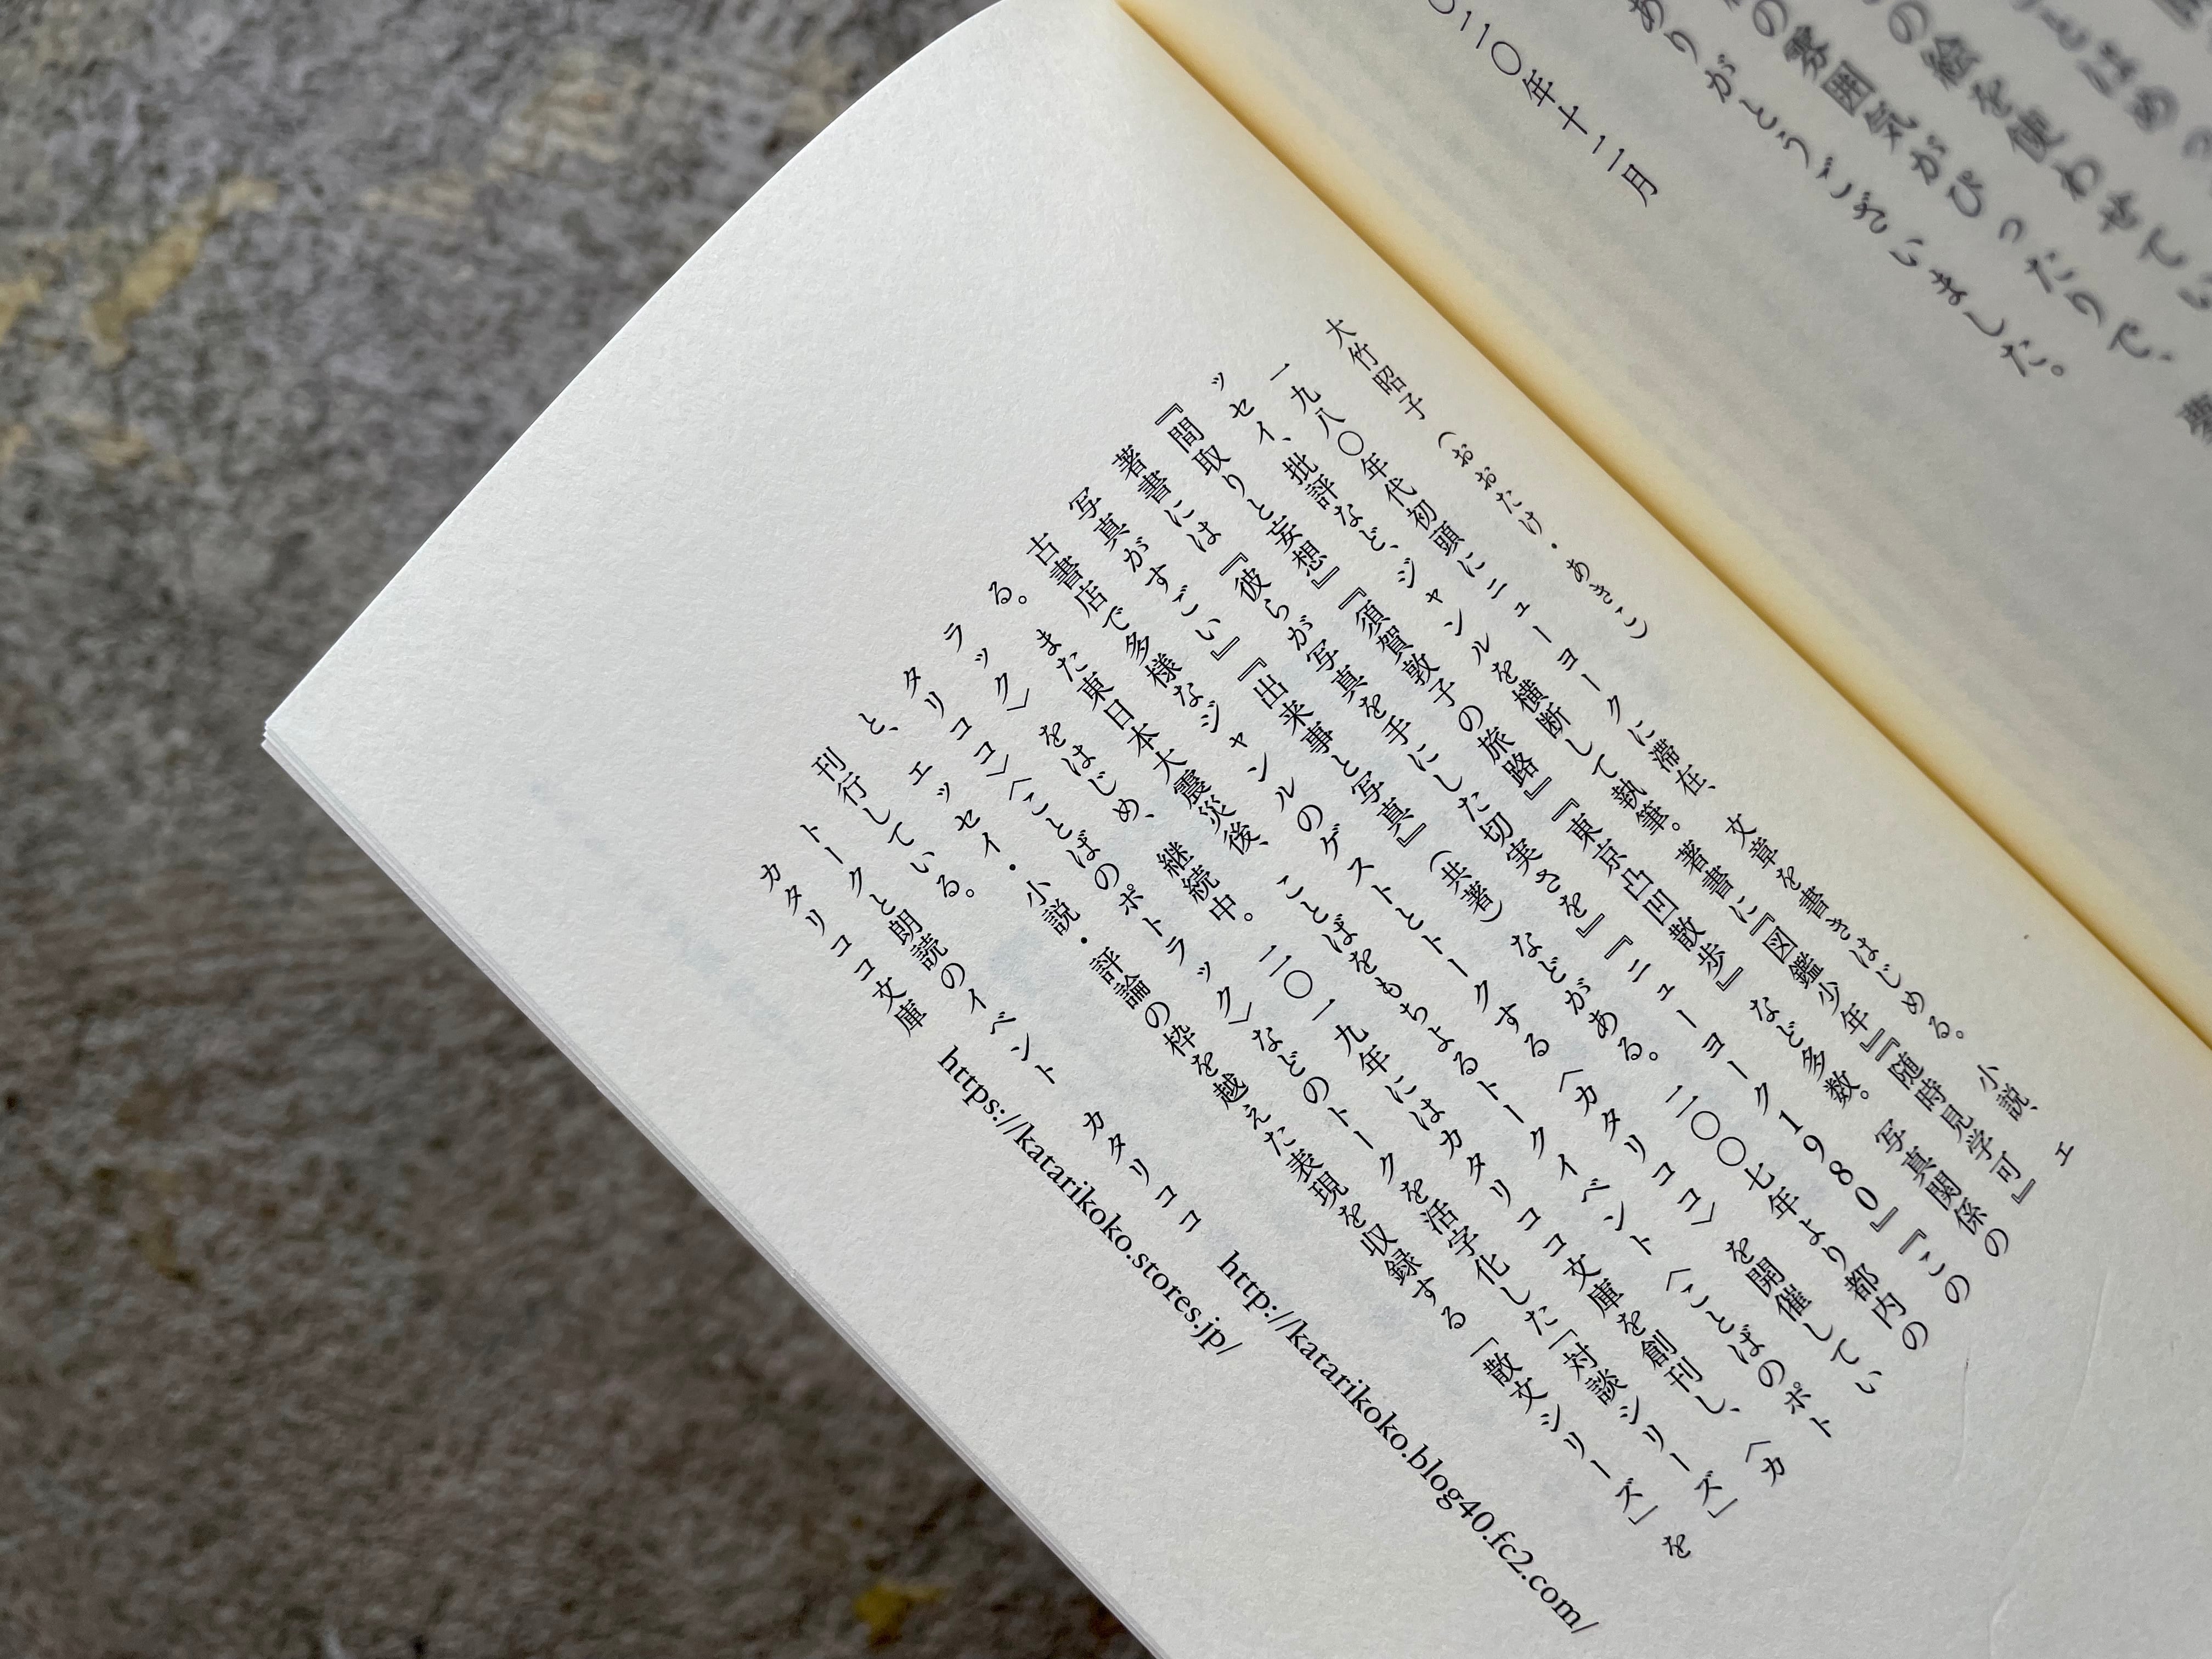 の絵を使わせてい
の雰囲気がぴったりで、
ありがとうございました。
〇二〇年十二月
大竹昭子（おおたけ・あきこ）
一九八〇年代初頭にニューヨークに滞在、文章を書きはじめる。小説、エ
ッセイ、批評など、ジャンルを横断して執筆。著書に『図鑑少年』『随時見学可』
『間取りと妄想』『須賀敦子の旅路』『東京凸凹散歩』など多数。写真関係の
著書には『彼らが写真を手にした切実さを』『ニューヨーク1980』『この
写真がすごい』『出来事と写真』（共著）などがある。二〇〇七年より都内の
古書店で多様なジャンルのゲストとトークする〈カタリココ〉を開催してい
る。また東日本大震災後、ことばをもちよるトークイベント〈ことばのポト
ラック〉をはじめ、継続中。二〇一九年にはカタリココ文庫を創刊し、〈カ
タリココ〉〈ことばのポトラック〉などのトークを活字化した「対談シリーズ」
と、エッセイ・小説・評論の枠を越えた表現を収録する「散文シリーズ」を
刊行している。
トークと朗読のイベント カタリココ http://katarikoko.blog40.fc2.com/
カタリココ文庫 https://katarikoko.stores.jp/